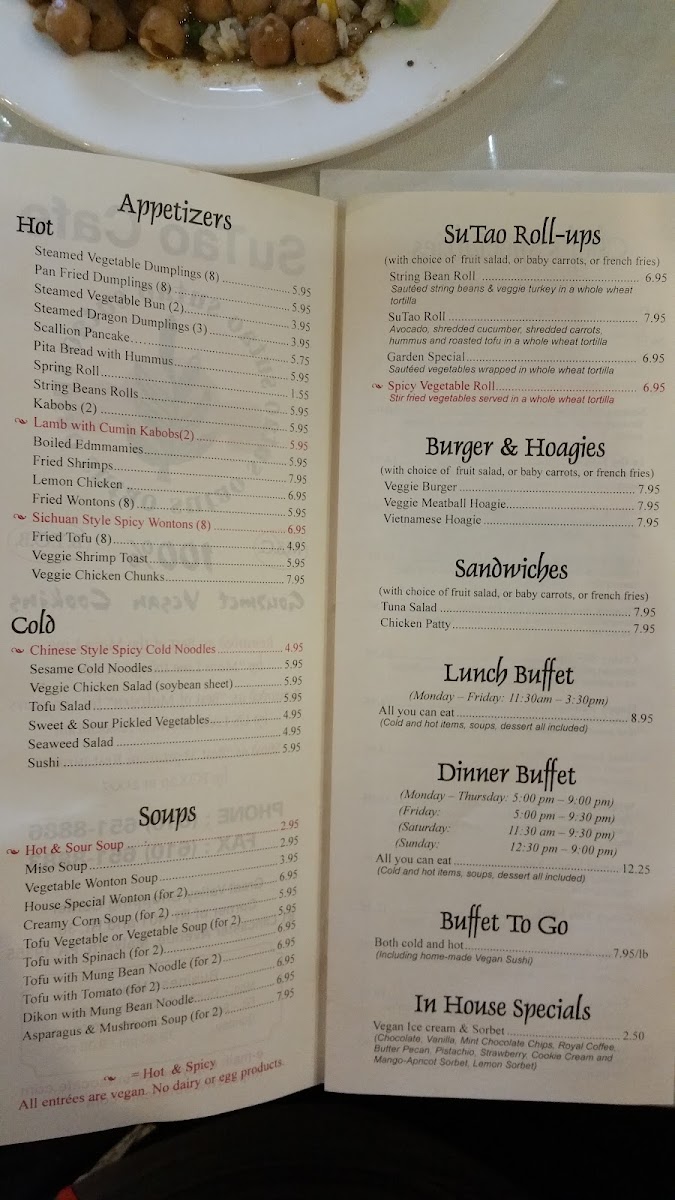 Appetizers
Hot
Steamed Vegetable Dumplings (8) ... 5.95
Pan Fried Dumplings (8) ... 5.95
Steamed Vegetable Bun (2) ... 3.95
Steamed Dragon Dumplings (3) ... 3.95
Scallion Pancake ... 5.75
Pita Bread with Hummus ... 5.95
Spring Roll ... 1.55
String Beans Rolls ... 5.95
Kabobs (2) ... 5.95
Lamb with Cumin Kabobs(2) ... 5.95
Boiled Edmmamies ... 5.95
Fried Shrimps ... 7.95
Lemon Chicken ... 6.95
Fried Wontons (8) ... 5.95
Sichuan Style Spicy Wontons (8) ... 6.95
Fried Tofu (8) ... 4.95
Veggie Shrimp Toast ... 5.95
Veggie Chicken Chunks ... 7.95
Cold
Chinese Style Spicy Cold Noodles ... 4.95
Sesame Cold Noodles ... 5.95
Veggie Chicken Salad (soybean sheet) ... 5.95
Tofu Salad ... 5.95
Sweet & Sour Pickled Vegetables ... 4.95
Seaweed Salad ... 4.95
Sushi ... 5.95
Soups
Hot & Sour Soup ... 2.95
Miso Soup ... 2.95
Vegetable Wonton Soup ... 3.95
House Special Wonton (for 2) ... 6.95
Creamy Corn Soup (for 2) ... 5.95
Tofu Vegetable or Vegetable Soup (for 2) ... 5.95
Tofu with Spinach (for 2) ... 6.95
Tofu with Mung Bean Noodle (for 2) ... 6.95
Tofu with Tomato (for 2) ... 6.95
Dikon with Mung Bean Noodle ... 6.95
Asparagus & Mushroom Soup (for 2) ... 7.95
= Hot & Spicy
All entrées are vegan. No dairy or egg products.
SuTao Roll-ups
(with choice of fruit salad, or baby carrots, or french fries)
String Bean Roll ... 6.95
Sautéed string beans & veggie turkey in a whole wheat
tortilla
SuTao Roll ... 7.95
Avocado, shredded cucumber, shredded carrots,
hummus and roasted tofu in a whole wheat tortilla
Garden Special ... 6.95
Sautéed vegetables wrapped in whole wheat tortilla
Spicy Vegetable Roll ... 6.95
Stir fried vegetables served in a whole wheat tortilla
Burger & Hoagies
(with choice of fruit salad, or baby carrots, or french fries)
Veggie Burger ... 7.95
Veggie Meatball Hoagie ... 7.95
Vietnamese Hoagie ... 7.95
Sandwiches
(with choice of fruit salad, or baby carrots, or french fries)
Tuna Salad ... 7.95
Chicken Patty ... 7.95
Lunch Buffet
(Monday – Friday: 11:30am – 3:30pm)
All you can eat ... 8.95
(Cold and hot items, soups, dessert all included)
Dinner Buffet
(Monday – Thursday: 5:00 pm – 9:00 pm)
(Friday: 5:00 pm – 9:30 pm)
(Saturday: 11:30 am – 9:30 pm)
(Sunday: 12:30 pm – 9:00 pm)
All you can eat ... 12.25
(Cold and hot items, soups, dessert all included)
Buffet To Go
Both cold and hot ... 7.95/lb
(Including home-made Vegan Sushi)
In House Specials
Vegan Ice cream & Sorbet ... 2.50
(Chocolate, Vanilla, Mint Chocolate Chips, Royal Coffee,
Butter Pecan, Pistachio, Strawberry, Cookie Cream and
Mango-Apricot Sorbet, Lemon Sorbet)